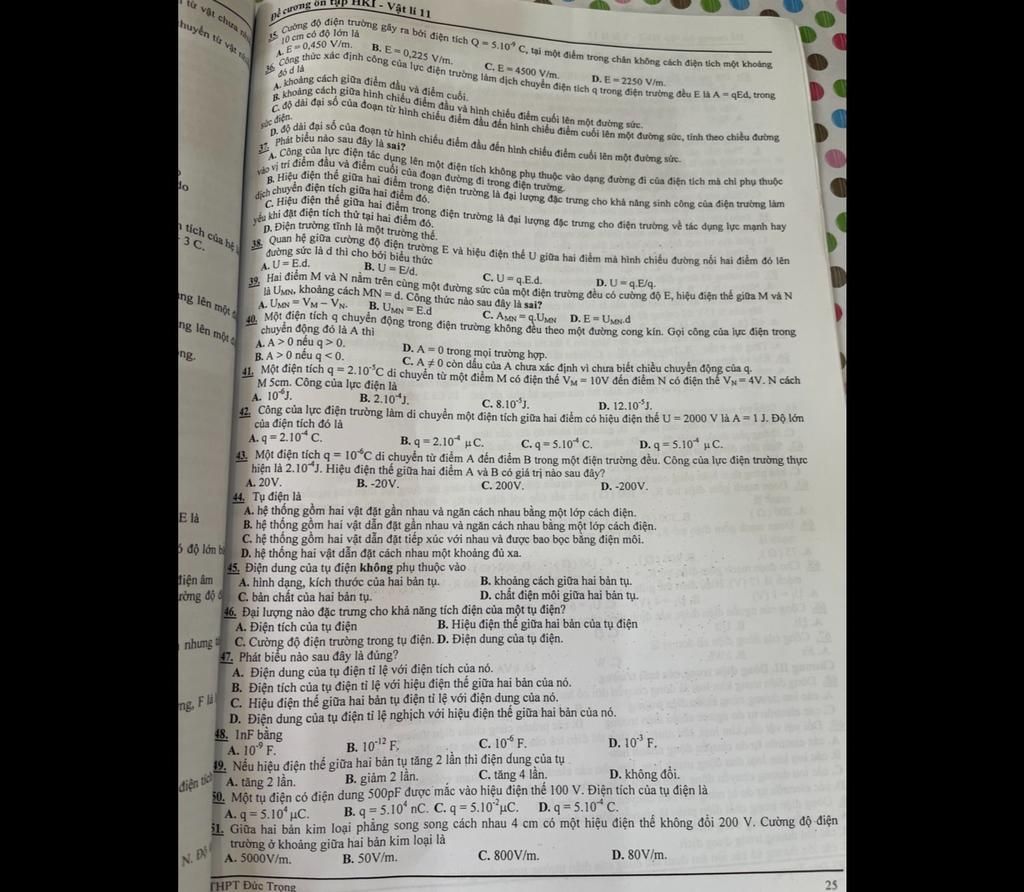 từ vật chưa
huyển từ vật
Đề cương ôn tập HKI - Vật lí 11
35. Cường độ điện trường gây ra bởi điện tích Q = 5.10⁻⁹ C, tại một điểm trong chân không cách điện tích một khoảng
10 cm có độ lớn là
A. E = 0,450 V/m. B. E = 0,225 V/m. C. E = 4500 V/m. D. E = 2250 V/m.
36. Công thức xác định công của lực điện trường làm dịch chuyển điện tích q trong điện trường đều E là A = qEd, trong
đó d là
A. khoảng cách giữa điểm đầu và điểm cuối.
B. khoảng cách giữa hình chiếu điểm đầu và hình chiếu điểm cuối lên một đường sức.
C. độ dài đại số của đoạn từ hình chiếu điểm đầu đến hình chiếu điểm cuối lên một đường sức, tính theo chiều đường
sức điện.
D. độ dài đại số của đoạn từ hình chiếu điểm đầu đến hình chiếu điểm cuối lên một đường sức.
37. Phát biểu nào sau đây là sai?
A. Công của lực điện tác dụng lên một điện tích không phụ thuộc vào dạng đường đi của điện tích mà chỉ phụ thuộc
vào vị trí điểm đầu và điểm cuối của đoạn đường đi trong điện trường.
B. Hiệu điện thế giữa hai điểm trong điện trường là đại lượng đặc trưng cho khả năng sinh công của điện trường làm
dịch chuyển điện tích giữa hai điểm đó.
C. Hiệu điện thế giữa hai điểm trong điện trường là đại lượng đặc trưng cho điện trường về tác dụng lực mạnh hay
yếu khi đặt điện tích thử tại hai điểm đó.
D. Điện trường tĩnh là một trường thế.
38. Quan hệ giữa cường độ điện trường E và hiệu điện thế U giữa hai điểm mà hình chiếu đường nối hai điểm đó lên
đường sức là d thì cho bởi biểu thức
A. U = E.d. B. U = E/d. C. U = q.E.d. D. U = q.E/q.
39. Hai điểm M và N nằm trên cùng một đường sức của một điện trường đều có cường độ E, hiệu điện thế giữa M và N
là UMN, khoảng cách MN = d. Công thức nào sau đây là sai?
A. UMN = VM – VN. B. UMN = E.d C. AMN = q.UMN D. E = UMN.d
40. Một điện tích q chuyển động trong điện trường không đều theo một đường cong kín. Gọi công của lực điện trong
chuyển động đó là A thì
A. A > 0 nếu q > 0. D. A = 0 trong mọi trường hợp.
B. A > 0 nếu q < 0. C. A ≠ 0 còn dấu của A chưa xác định vì chưa biết chiều chuyển động của q.
41. Một điện tích q = 2.10⁻⁵C di chuyển từ một điểm M có điện thế VM = 10V đến điểm N có điện thế VN = 4V. N cách
M 5cm. Công của lực điện là
A. 10⁻⁶J. B. 2.10⁻⁴J. C. 8.10⁻⁵J. D. 12.10⁻⁵J.
42. Công của lực điện trường làm di chuyển một điện tích giữa hai điểm có hiệu điện thế U = 2000 V là A = 1 J. Độ lớn
của điện tích đó là
A. q = 2.10⁻⁴ C. B. q = 2.10⁻⁴ μC. C. q = 5.10⁻⁴ C. D. q = 5.10⁻⁴ μC.
43. Một điện tích q = 10⁻⁶C di chuyển từ điểm A đến điểm B trong một điện trường đều. Công của lực điện trường thực
hiện là 2.10⁻⁴J. Hiệu điện thế giữa hai điểm A và B có giá trị nào sau đây?
A. 20V. B. -20V. C. 200V. D. -200V.
44. Tụ điện là
A. hệ thống gồm hai vật đặt gần nhau và ngăn cách nhau bằng một lớp cách điện.
B. hệ thống gồm hai vật dẫn đặt gần nhau và ngăn cách nhau bằng một lớp cách điện.
C. hệ thống gồm hai vật dẫn đặt tiếp xúc với nhau và được bao bọc bằng điện môi.
D. hệ thống hai vật dẫn đặt cách nhau một khoảng đủ xa.
45. Điện dung của tụ điện không phụ thuộc vào
A. hình dạng, kích thước của hai bản tụ. B. khoảng cách giữa hai bản tụ.
C. bản chất của hai bản tụ. D. chất điện môi giữa hai bản tụ.
46. Đại lượng nào đặc trưng cho khả năng tích điện của một tụ điện?
A. Điện tích của tụ điện B. Hiệu điện thế giữa hai bản của tụ điện
C. Cường độ điện trường trong tụ điện. D. Điện dung của tụ điện.
47. Phát biểu nào sau đây là đúng?
A. Điện dung của tụ điện tỉ lệ với điện tích của nó.
B. Điện tích của tụ điện tỉ lệ với hiệu điện thế giữa hai bản của nó.
C. Hiệu điện thế giữa hai bản tụ điện tỉ lệ với điện dung của nó.
D. Điện dung của tụ điện tỉ lệ nghịch với hiệu điện thế giữa hai bản của nó.
48. 1nF bằng
A. 10⁻⁹ F. B. 10⁻¹² F. C. 10⁻⁶ F. D. 10⁻³ F.
49. Nếu hiệu điện thế giữa hai bản tụ tăng 2 lần thì điện dung của tụ
A. tăng 2 lần. B. giảm 2 lần. C. tăng 4 lần. D. không đổi.
50. Một tụ điện có điện dung 500pF được mắc vào hiệu điện thế 100 V. Điện tích của tụ điện là
A. q = 5.10⁴ μC. B. q = 5.10⁴ nC. C. q = 5.10⁻²μC. D. q = 5.10⁻⁴ C.
51. Giữa hai bản kim loại phẳng song song cách nhau 4 cm có một hiệu điện thế không đổi 200 V. Cường độ điện
trường ở khoảng giữa hai bản kim loại là
A. 5000V/m. B. 50V/m. C. 800V/m. D. 80V/m.
THPT Đức Trọng 25
tích của hệ
3 C.
ng lên một
ng lên một
E là
độ lớn
điện âm
ường độ
nhưng
ng, F là
điện tích
N. Độ